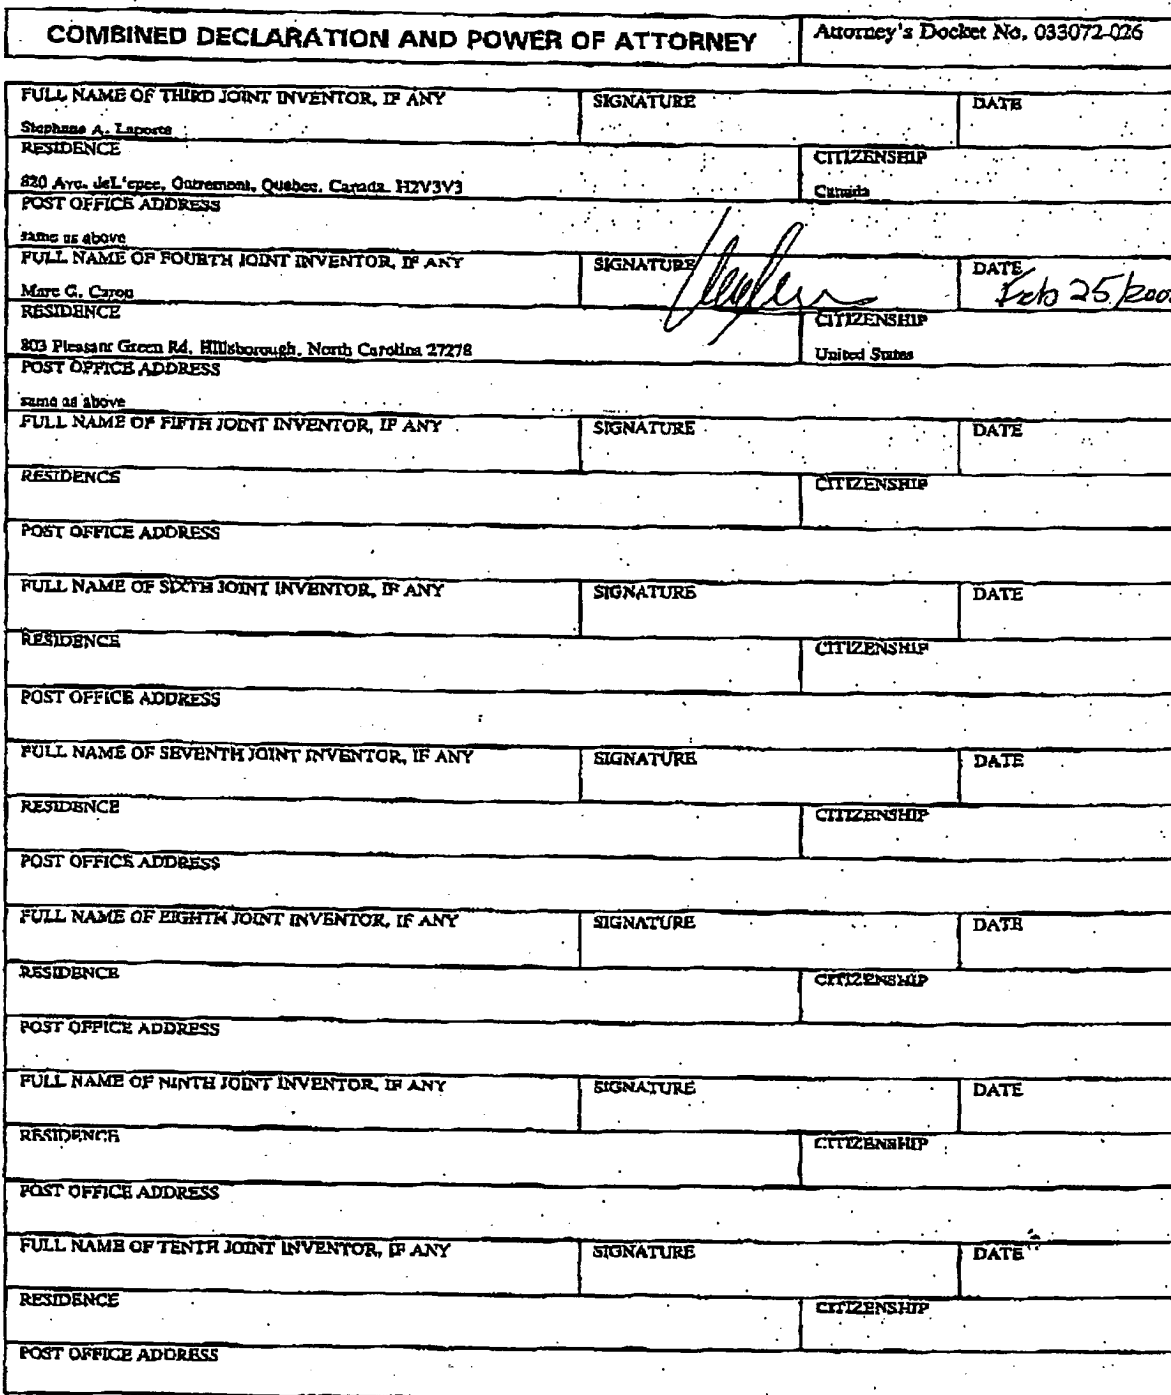 COMBINED DECLARATION AND POWER OF ATTORNEY
Attorney's Docket No. 033072-026
FULL NAME OF THIRD JOINT INVENTOR, IF ANY
SIGNATURE
DATE
Stephane A. Laporte
RESIDENCE
CITIZENSHIP
820 Ave. deL'epee, Outremont, Quebec, Canada H2V3V3
Canada
POST OFFICE ADDRESS
same as above
FULL NAME OF FOURTH JOINT INVENTOR, IF ANY
SIGNATURE
DATE
Marc G. Caron
Feb 25/200
RESIDENCE
CITIZENSHIP
803 Pleasant Green Rd, Hillsborough, North Carolina 27278
United States
POST OFFICE ADDRESS
same as above
FULL NAME OF FIFTH JOINT INVENTOR, IF ANY
SIGNATURE
DATE
RESIDENCE
CITIZENSHIP
POST OFFICE ADDRESS
FULL NAME OF SIXTH JOINT INVENTOR, IF ANY
SIGNATURE
DATE
RESIDENCE
CITIZENSHIP
POST OFFICE ADDRESS
FULL NAME OF SEVENTH JOINT INVENTOR, IF ANY
SIGNATURE
DATE
RESIDENCE
CITIZENSHIP
POST OFFICE ADDRESS
FULL NAME OF EIGHTH JOINT INVENTOR, IF ANY
SIGNATURE
DATE
RESIDENCE
CITIZENSHIP
POST OFFICE ADDRESS
FULL NAME OF NINTH JOINT INVENTOR, IF ANY
SIGNATURE
DATE
RESIDENCE
CITIZENSHIP
POST OFFICE ADDRESS
FULL NAME OF TENTH JOINT INVENTOR, IF ANY
SIGNATURE
DATE
RESIDENCE
CITIZENSHIP
POST OFFICE ADDRESS